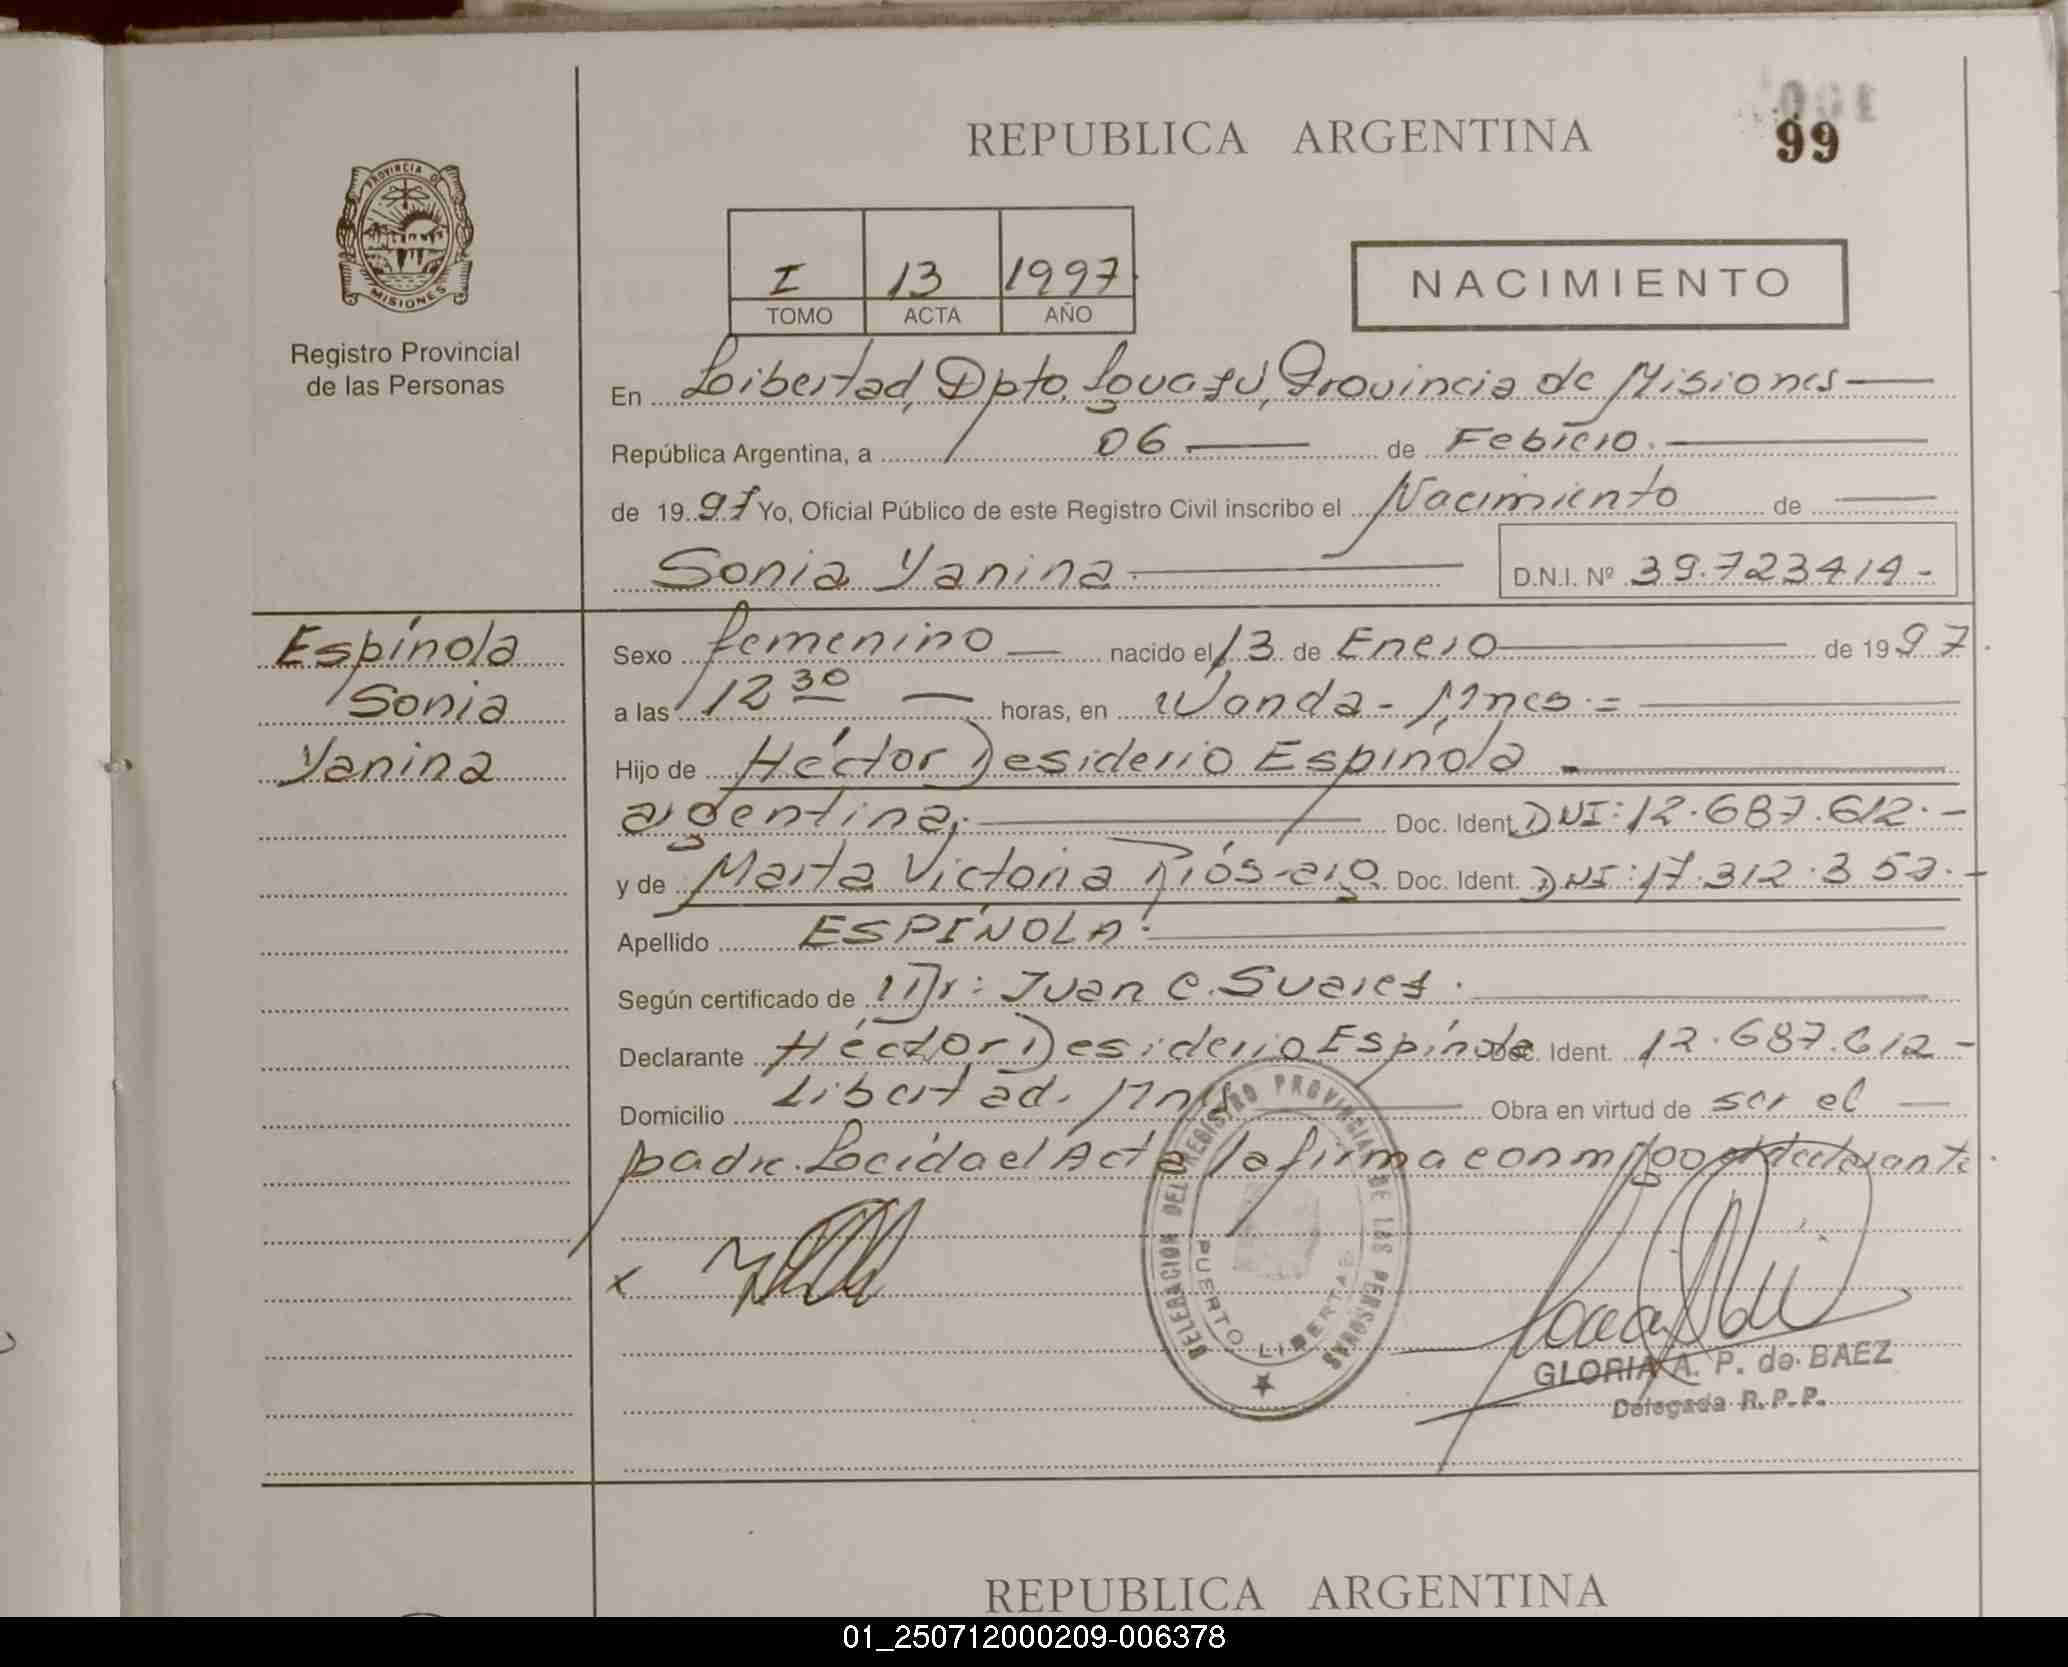 REPUBLICA ARGENTINA
99
PROVINCIA DE
MISIONES
Registro Provincial
de las Personas
I 13 1997
TOMO ACTA AÑO
NACIMIENTO
En Libertad, Dpto. Iguazú, Provincia de Misiones
República Argentina, a 06 de Febrero.
de 1997 Yo, Oficial Público de este Registro Civil inscribo el Nacimiento de
Sonia Yanina
D.N.I. Nº 39.723414-
Espínola
Sonia
Yanina
Sexo femenino nacido el 13 de Enero de 1997.
a las 12 30 horas, en Wanda - Mnes.=
Hijo de Héctor Desiderio Espínola
argentina, Doc. Ident. DNI: 12.687.612.-
y de Marta Victoria Ríos-arg. Doc. Ident. DNI: 17.312.352.-
Apellido ESPÍNOLA.
Según certificado de Dr: Juan C. Suarez.
Declarante Héctor Desiderio Espínola Doc. Ident. 12.687.612-
Domicilio Libertad. Mnes Obra en virtud de ser el
padre. Leída el Acta la firma conmigo el declarante.
x
DELEGACION DEL REGISTRO PROVINCIAL DE LAS PERSONAS
PUERTO LIBERTAD
GLORIA A. P. de BAEZ
Delegada R.P.P.
REPUBLICA ARGENTINA
01_250712000209-006378